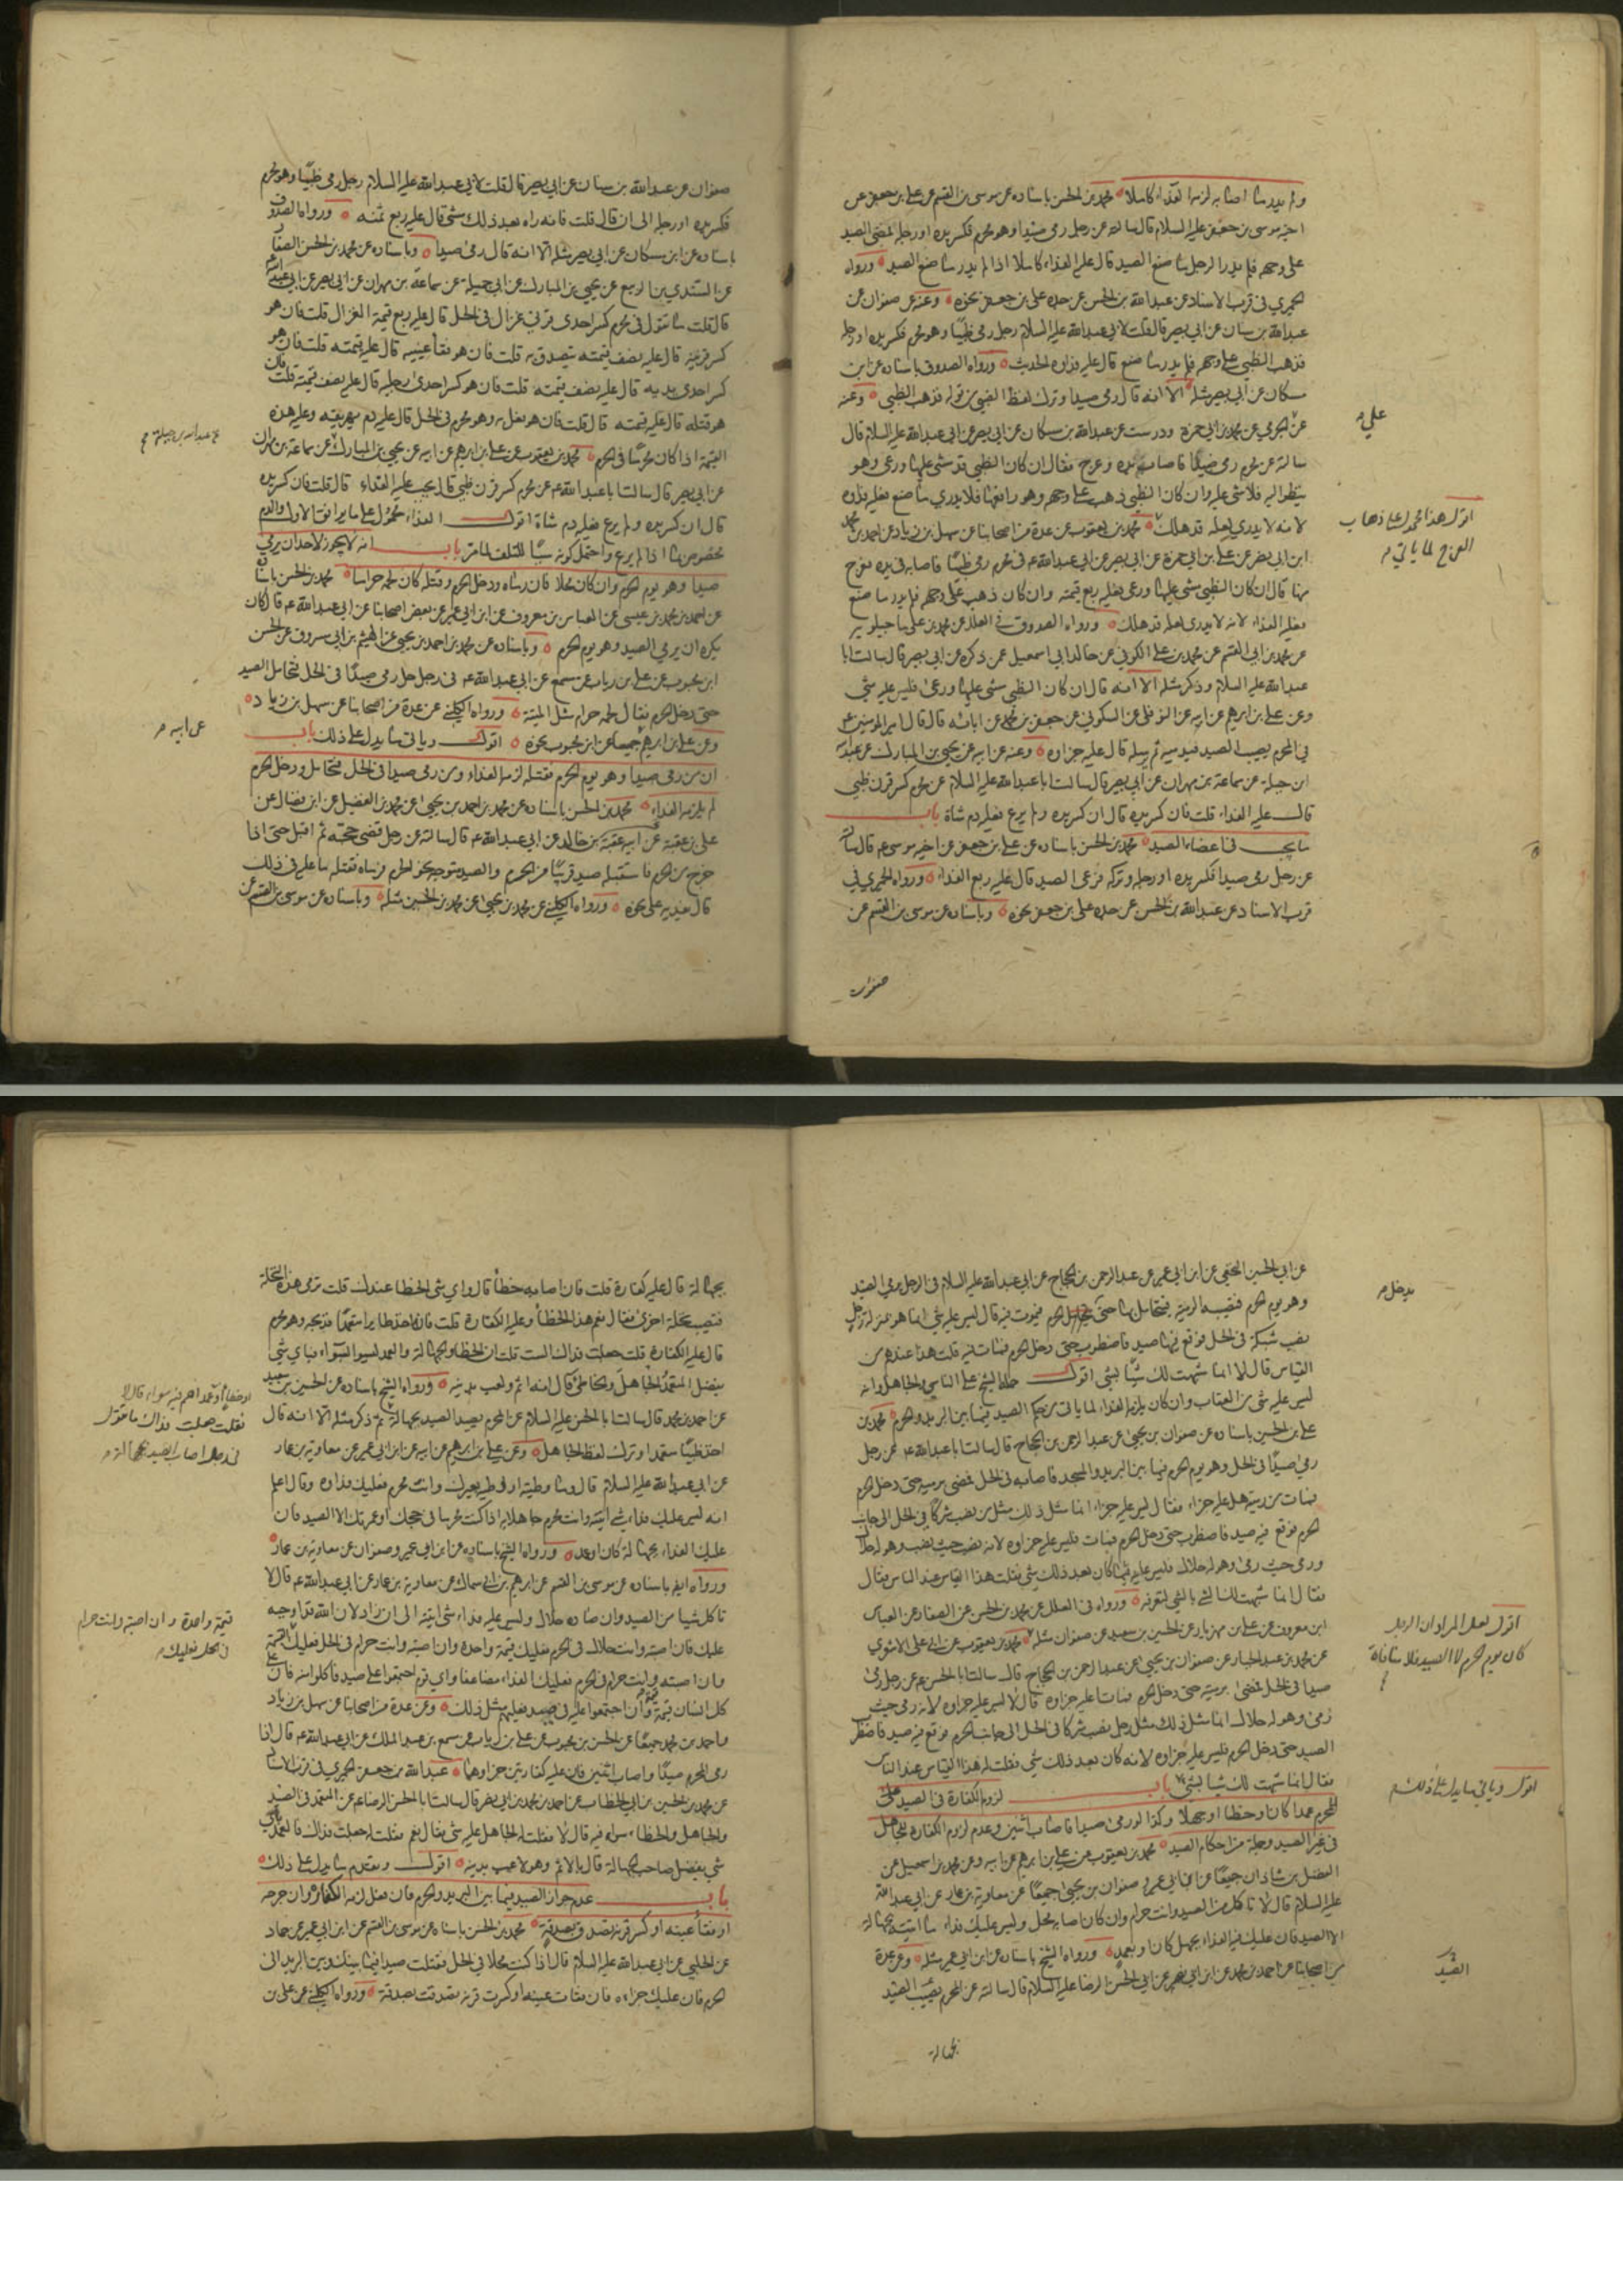 ولم يدر ما اصابه لزمه الفداء كاملا محمد بن الحسن باسناده عن موسى بن القسم عن علي بن جعفر عن
اخيه موسى بن جعفر عليه السلام قال سالته عن رجل رمى صيدا وهو محرم فكسر يده او رجله فمضى الصيد
على وجهه فلم يدر الرجل ما صنع الصيد قال عليه الفداء كاملا اذا لم يدر ما صنع الصيد ورواه
الحميري في قرب الاسناد عن عبدالله بن الحسن عن جده علي بن جعفر نحوه وعنه عن صفوان عن
عبدالله بن سنان عن ابي بصير قال قلت لابي عبدالله عليه السلام رجل رمى ظبيا وهو محرم فكسر يده او رجله
فذهب الظبي على وجهه فلم يدر ما صنع قال عليه فداؤه الحديث ورواه الصدوق باسناده عن ابن
مسكان عن ابي بصير مثله الا انه قال رمى صيدا وترك لفظ الظبي من قوله فذهب الظبي وعنه
عن الجرمي عن محمد بن ابي حمزة ودرست عن عبدالله بن مسكان عن ابي بصير عن ابي عبدالله عليه السلام قال
سالته عن محرم رمى صيدا فاصاب يده وعرج فقال ان كان الظبي قد مشى عليها ورعى وهو
ينظر اليه فلا شي عليه وان كان الظبي ذهب على وجهه وهو رافعها فلا يدري ما صنع فعليه فداؤه
لانه لا يدري لعله قد هلك محمد بن يعقوب عن عدة من اصحابنا عن سهل بن زياد عن احمد بن محمد
ابن ابي نصر عن علي بن ابي حمزة عن ابي بصير عن ابي عبدالله ع في محرم رمى ظبيا فاصابه في يده فعرج
منها قال ان كان الظبي مشى عليها ورعى فعليه ربع قيمته وان كان ذهب على وجهه فلم يدر ما صنع
فعليه الفداء لانه لا يدري لعله قد هلك ورواه الصدوق في العلل عن محمد بن علي ماجيلويه
عن محمد بن ابي القسم عن محمد بن علي الكوفي عن خالد ابي اسمعيل عمن ذكره عن ابي بصير قال سالت ابا
عبدالله عليه السلام وذكر مثله الا انه قال ان كان الظبي مشى عليها ورعى فليس عليه شي
وعن علي بن ابرهيم عن ابيه عن النوفلي عن السكوني عن جعفر بن محمد عن ابائه قال قال امير المؤمنين ع
في المحرم يصيب الصيد فيدميه ثم يرسله قال عليه جزاؤه وعنه عن ابيه عن يحيى بن المبارك عن عبدالله
ابن جبلة عن سماعة بن مهران عن ابي بصير قال سالت ابا عبدالله عليه السلام عن محرم كسر قرن ظبي
قال عليه الفداء قلت فان كسر يده قال ان كسر يده ولم يرع فعليه دم شاة باب
ما يجب في اعضاء الصيد محمد بن الحسن باسناده عن علي بن جعفر عن اخيه موسى ع قال سالته
عن رجل رمى صيدا فكسر يده او رجله وتركه فرعى الصيد قال عليه ربع الفداء ورواه الحميري في
قرب الاسناد عن عبدالله بن الحسن عن جده علي بن جعفر نحوه وباسناده عن موسى بن القسم عن
صفوان
علي م
اقول هذا محمول على ذهاب
العرج لما ياتي م
صفوان عن عبدالله بن سنان عن ابي بصير قال قلت لابي عبدالله عليه السلام رجل رمى ظبيا وهو محرم
فكسر يده او رجله الى ان قال قلت فانه راه بعد ذلك مشى قال عليه ربع ثمنه ورواه الصدوق
باسناده عن ابن مسكان عن ابي بصير مثله الا انه قال رمى صيدا وباسناده عن محمد بن الحسن الصفار
عن السندي بن الربيع عن يحيى بن المبارك عن ابي جميلة عن سماعة بن مهران عن ابي بصير عن ابي عبدالله
قال قلت ما تقول في محرم كسر احدى قرني غزال في الحل قال عليه ربع قيمة الغزال قلت فان هو
كسر قرنيه قال عليه نصف قيمته يتصدق به قلت فان هو فقأ عينيه قال عليه قيمته قلت فان هو
كسر احدى يديه قال عليه نصف قيمته قلت فان هو كسر احدى رجليه قال عليه نصف قيمته قلت فان
هو قتله قال عليه قيمته قال قلت فان هو فعل به وهو محرم في الحل قال عليه دم يهريقه وعليه هذه
القيمة اذا كان محرما في الحرم محمد بن يعقوب عن علي بن ابرهيم عن ابيه عن يحيى بن المبارك عن سماعة بن مهران
عن ابي بصير قال سالت ابا عبدالله ع عن محرم كسر قرن ظبي قال يجب عليه الفداء قال قلت فان كسر يده
قال ان كسر يده ولم يرع فعليه دم شاة اقول الفداء محمول على ما يوافق الاول والدم
مخصوص بما اذا لم يرع واحتمل كونه سببا للتلف لما مر باب انه لا يجوز لاحد ان يرمي
صيدا وهو يؤم الحرم وان كان محلا فان رماه ودخل الحرم وقتله كان لحمه حراما محمد بن الحسن باسناده
عن احمد بن محمد بن عيسى عن العباس بن معروف عن ابن ابي عمير عن بعض اصحابنا عن ابي عبدالله ع قال كان
يكره ان يرمي الصيد وهو يؤم الحرم وباسناده عن محمد بن احمد بن يحيى عن الهيثم بن ابي مسروق عن الحسن
ابن محبوب عن علي بن رياب عن مسمع عن ابي عبدالله ع في رجل حل رمى صيدا في الحل فتحامل الصيد
حتى دخل الحرم فقال لحمه حرام مثل الميتة ورواه الكليني عن عدة من اصحابنا عن سهل بن زياد
وعن علي بن ابرهيم جميعا عن ابن محبوب نحوه اقول وياتي ما يدل على ذلك باب
ان من رمى صيدا وهو يؤم الحرم فقتله لزمه الفداء ومن رمى صيدا في الحل فتحامل ودخل الحرم
لم يلزمه الفداء محمد بن الحسن باسناده عن محمد بن احمد بن يحيى عن محمد بن الفضيل عن ابن فضال عن
علي بن عقبة عن ابيه عقبة بن خالد عن ابي عبدالله ع قال سالته عن رجل قضى حجته ثم اقبل حتى اذا
خرج من الحرم فاستقبله صيد قريبا من الحرم والصيد متوجه نحو الحرم فرماه فقتله ما عليه في ذلك
قال يفديه على نحوه ورواه الكليني عن محمد بن يحيى عن محمد بن الحسين مثله وباسناده عن موسى بن القسم عن
عن عبدالله بن جبلة
عن ابيه م
عن ابي الحسين النخعي عن ابن ابي عمير عن عبد الرحمن بن الحجاج عن ابي عبدالله عليه السلام في الرجل يرمي الصيد
وهو يؤم الحرم فتصيبه الرمية فيتحامل بها حتى يدخل الحرم فيموت فيه قال ليس عليه شي انما هو بمنزلة رجل
نصب شبكة في الحل فوقع فيها صيد فاضطرب حتى دخل الحرم فمات فيه قلت هذا عندهم من
القياس قال لا انما شبهت لك شيئا بشي اقول حمله الشيخ على الناسي والجاهل وانه
ليس عليه شي من العقاب وان كان يلزمه الفداء لما ياتي من حكم الصيد فيما بين البريد والحرم محمد بن
علي بن الحسين باسناده عن صفوان بن يحيى عن عبد الرحمن بن الحجاج قال سالت ابا عبدالله ع عن رجل
رمى صيدا في الحل وهو يؤم الحرم فيما بين البريد والمسجد فاصابه في الحل فمضى برميته حتى دخل الحرم
فمات من رميته هل عليه جزاء فقال ليس عليه جزاء انما مثل ذلك مثل من نصب شركا في الحل الى جانب
الحرم فوقع فيه صيد فاضطرب حتى دخل الحرم فمات فليس عليه جزاؤه لانه نصب حيث نصب وهو له حلال
ورمى حيث رمى وهو له حلال فليس عليه فيما كان بعد ذلك شي فقلت هذا القياس عند الناس فقال
فقال انما شبهت لك الشي بالشي لتعرفه ورواه في العلل عن محمد بن الحسن عن الصفار عن العباس
ابن معروف عن علي بن مهزيار عن الحسين بن سعيد عن صفوان مثله محمد بن يعقوب عن ابي علي الاشعري
عن محمد بن عبد الجبار عن صفوان بن يحيى عن عبد الرحمن بن الحجاج قال سالت ابا الحسن ع عن رجل رمى
صيدا في الحل فمضى برميته حتى دخل الحرم فمات اعليه جزاؤه قال لا ليس عليه جزاؤه لانه رمى حيث
رمى وهو له حلال انما مثل ذلك مثل رجل نصب شركا في الحل الى جانب الحرم فوقع فيه صيد فاضطرب
الصيد حتى دخل الحرم فليس عليه جزاؤه لانه كان بعد ذلك شي فقلت له هذا القياس عند الناس
فقال انما شبهت لك شيئا بشي باب لزوم الكفارة في الصيد على
المحرم عمدا كان او خطا او جهلا وكذا لو رمى صيدا فاصاب اثنين وعدم لزوم الكفارة للجاهل
في غير الصيد وجملة من احكام الصيد محمد بن يعقوب عن علي بن ابرهيم عن ابيه وعن محمد بن اسمعيل عن
الفضل بن شاذان جميعا عن ابن ابي عمير وصفوان بن يحيى جميعا عن معاوية بن عمار عن ابي عبدالله
عليه السلام قال لا تاكل من الصيد وانت حرام وان كان اصابه محل وليس عليك فداء ما اتيته بجهالة
الا الصيد فان عليك فيه الفداء بجهل كان او بعمد ورواه الشيخ باسناده عن ابن ابي عمير مثله وعن عدة
من اصحابنا عن احمد بن محمد عن ابن ابي نصر عن ابي الحسن الرضا عليه السلام قال سالته عن المحرم يصيب الصيد
بجهالة
يدخل م
اقول لعل المراد ان الرجل
كان يؤم الحرم لا الصيد فلا منافاة
اقول وياتي ما يدل على ذلك م
الصيد
بجهالة قال عليه كفارة قلت فان اصابه خطأ قال واي شي الخطا عندك قلت ترمي هذه النخلة
فتصيب نخلة اخرى فقال نعم هذا الخطأ وعليه الكفارة قلت فانه اخذ طايرا متعمدا فذبحه وهو محرم
قال عليه الكفارة قلت جعلت فداك الست قلت ان الخطا والجهالة والعمد ليسوا بسواء فباي شي
يفضل المتعمد الجاهل والخاطئ قال انه اثم ولعب بدينه ورواه الشيخ باسناده عن الحسين بن سعيد
عن احمد بن محمد قال سالت ابا الحسن عليه السلام عن المحرم يصيد الصيد بجهالة ثم ذكر مثله الا انه قال
اخذ ظبيا متعمدا وترك لفظ الجاهل وعن علي بن ابرهيم عن ابيه عن ابن ابي عمير عن معاوية بن عمار
عن ابي عبدالله عليه السلام قال وما وطيته او وطيه بعيرك وانت محرم فعليك فداؤه وقال اعلم
انه ليس عليك فداء شي اتيته وانت محرم جاهلا به اذا كنت محرما في حجك او عمرتك الا الصيد فان
عليك الفداء بجهالة كان او عمد ورواه الشيخ باسناده عن ابن ابي عمير وصفوان عن معاوية بن عمار
ورواه ايضا باسناده عن موسى بن القسم عن ابرهيم بن ابي سماك عن معاوية بن عمار عن ابي عبدالله ع قال لا
تاكل شيا من الصيد وان صاده حلال وليس عليه فداء شي اتيته الى ان زاد لان الله قد اوجبه
عليك فان اصبته وانت حلال في الحرم فعليك قيمة واحدة وان اصبته وانت حرام في الحل فعليك القيمة
وان اصبته وانت حرام في الحرم فعليك الفداء مضاعفا واي قوم اجتمعوا على صيد فاكلوا منه فان على
كل انسان قيمة وان اجتمعوا عليه في صيد فعليهم مثل ذلك وعن عدة من اصحابنا عن سهل بن زياد
واحمد بن محمد جميعا عن الحسن بن محبوب عن علي بن رياب عن مسمع بن عبد الملك عن ابي عبدالله ع قال اذا
رمى المحرم صيدا واصاب اثنين فان عليه كفارتين جزاوهما عبدالله بن جعفر الحميري في قرب الاسناد
عن محمد بن الحسين بن ابي الخطاب عن احمد بن محمد بن ابي نصر قال سالت ابا الحسن الرضا ع عن المتعمد في الصيد
والجاهل والخطاء سواء فيه قال لا فقلت له الجاهل عليه شي فقال نعم فقلت له جعلت فداك فالعمد باي
شي يفضل صاحب الجهالة قال بالاثم وهو لاعب بدينه اقول وتقدم ما يدل على ذلك
باب عدم جواز الصيد فيما بين البريد والحرم فان فعل لزمه الكفارة وان جرحه
او فقأ عينه او كسر قرنه تصدق بصدقة محمد بن الحسن باسناده عن موسى بن القسم عن ابن ابي عمير عن حماد
عن الحلبي عن ابي عبدالله عليه السلام قال اذا كنت محلا في الحل فقتلت صيدا فيما بينك وبين البريد الى
الحرم فان عليك جزاءه فان فقات عينه او كسرت قرنه تصدقت بصدقة ورواه الكليني عن علي بن
او خطا او عمد اهم فيه سواء قال لا
فقلت جعلت فداك ما تقول
في رجل اصاب الصيد بجهالة م
قيمة واحدة وان اصبته وانت حرام
في الحل فعليك م